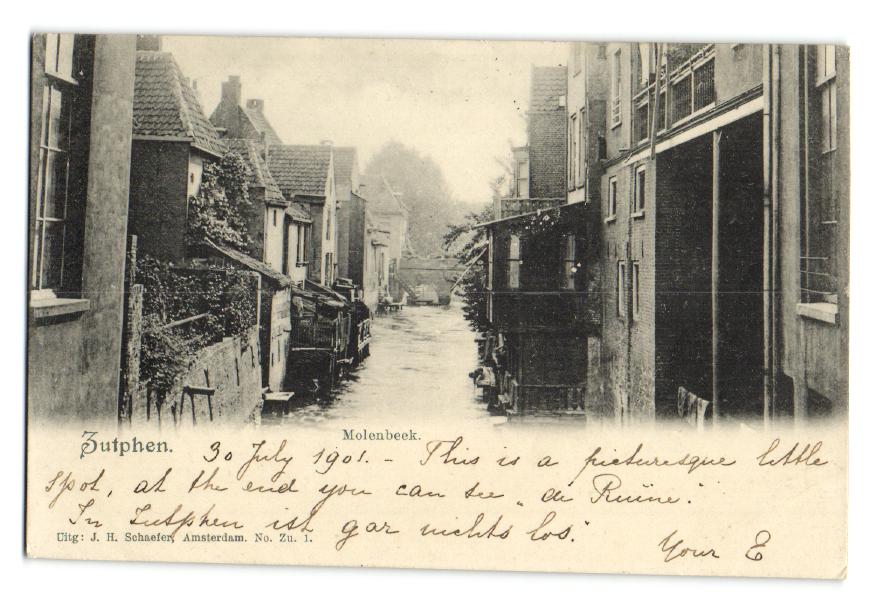 Molenbeek.
Zutphen. 30 July 1901. - This is a picturesque little
spot, at the end you can see „de Ruïne".
In Zutphen ist gar nichts los."
Uitg: J. H. Schaefer, Amsterdam. No. Zu. 1.
Your E